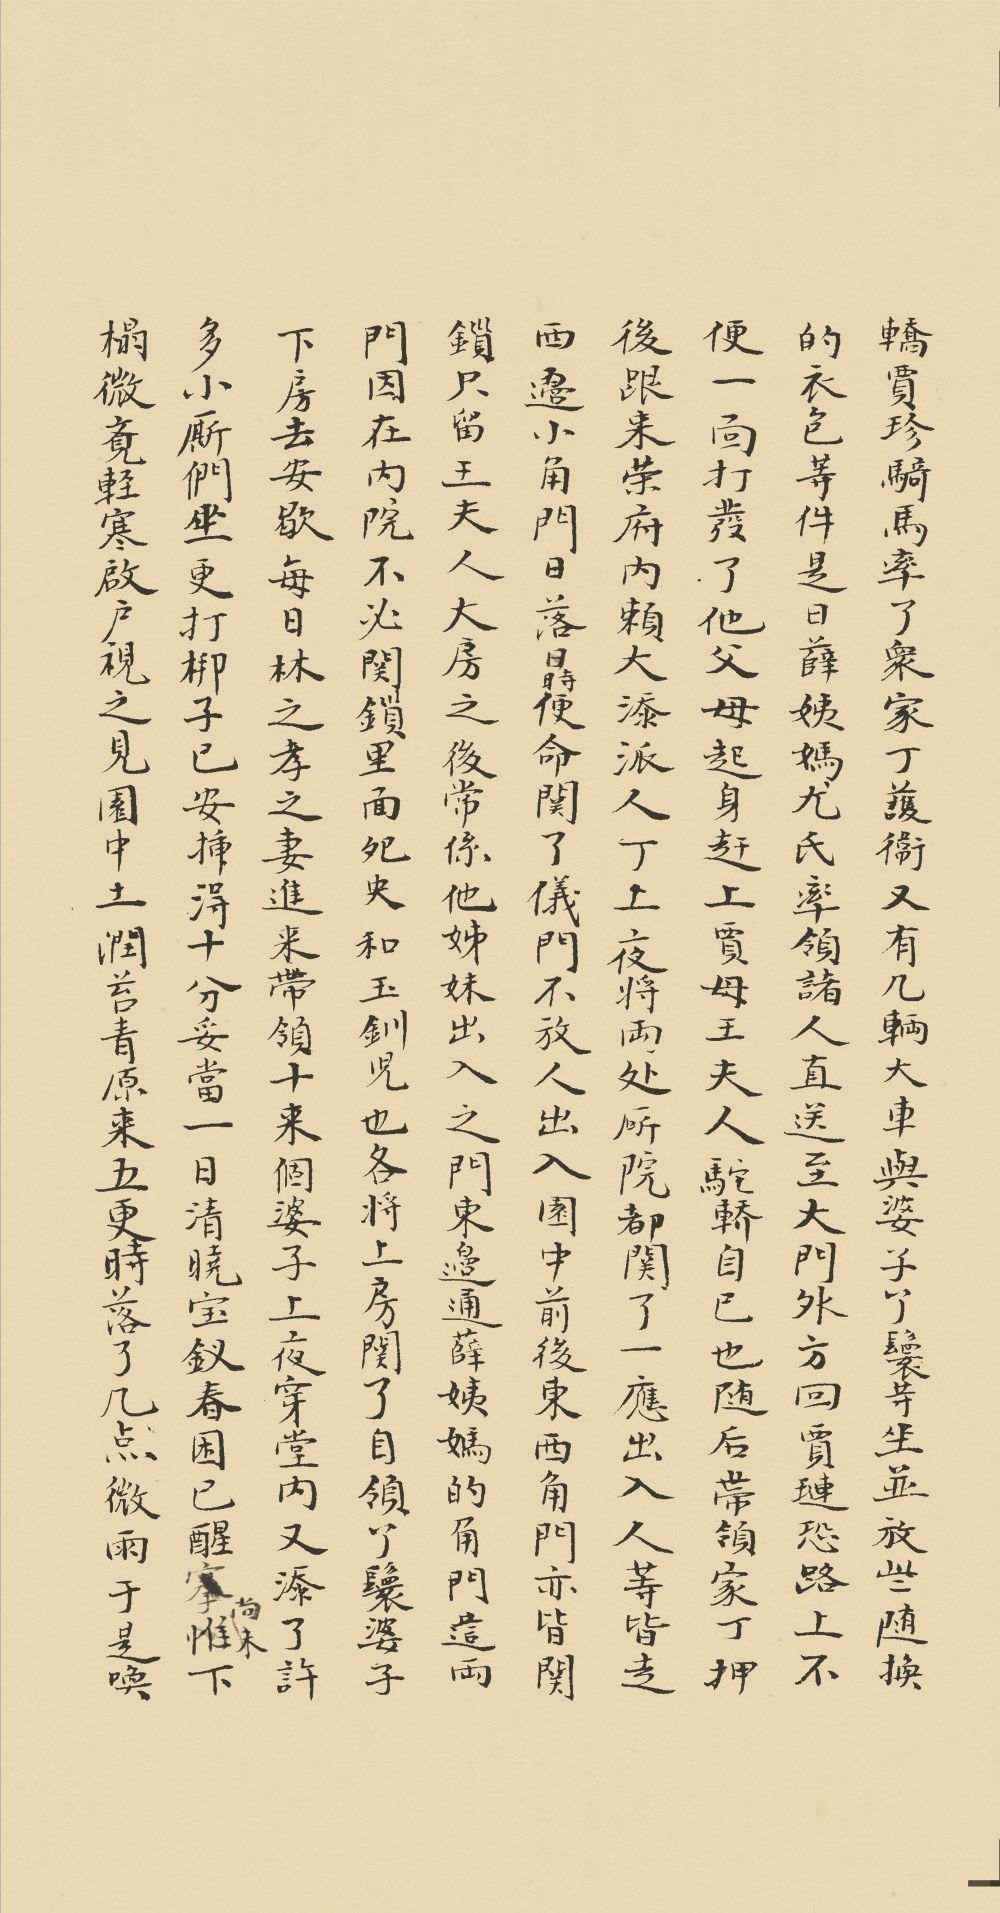 轎賈珍騎馬率了衆家丁護衛又有几輛大車與婆子丫鬟等坐並放些随换
的衣包等件是日薛姨媽尤氏率領諸人直送至大門外方回賈璉恐路上不
便一面打發了他父母起身赶上賈母王夫人駝轎自已也随后带領家丁押
後跟来荣府内賴大添派人丁上夜将両处㕔院都関了一應出入人等皆走
西邉小角門日落時便命関了儀門不放人出入園中前後東西角門亦皆関
鎖只留王夫人大房之後常係他姊妹出入之門東邉通薛姨媽的角門這両
門因在内院不必関鎖里面夗央和玉釧児也各将上房関了自領丫鬟婆子
下房去安歇每日林之孝之妻進来帶領十来個婆子上夜穿堂内又添了許
多小厮們坐更打梆子已安揷得十分妥當一日清曉宝釵春困已醒搴帷尚未下
榻微竟輕寒啟户視之見園中土潤苔青原来五更時落了几点微雨于是喚